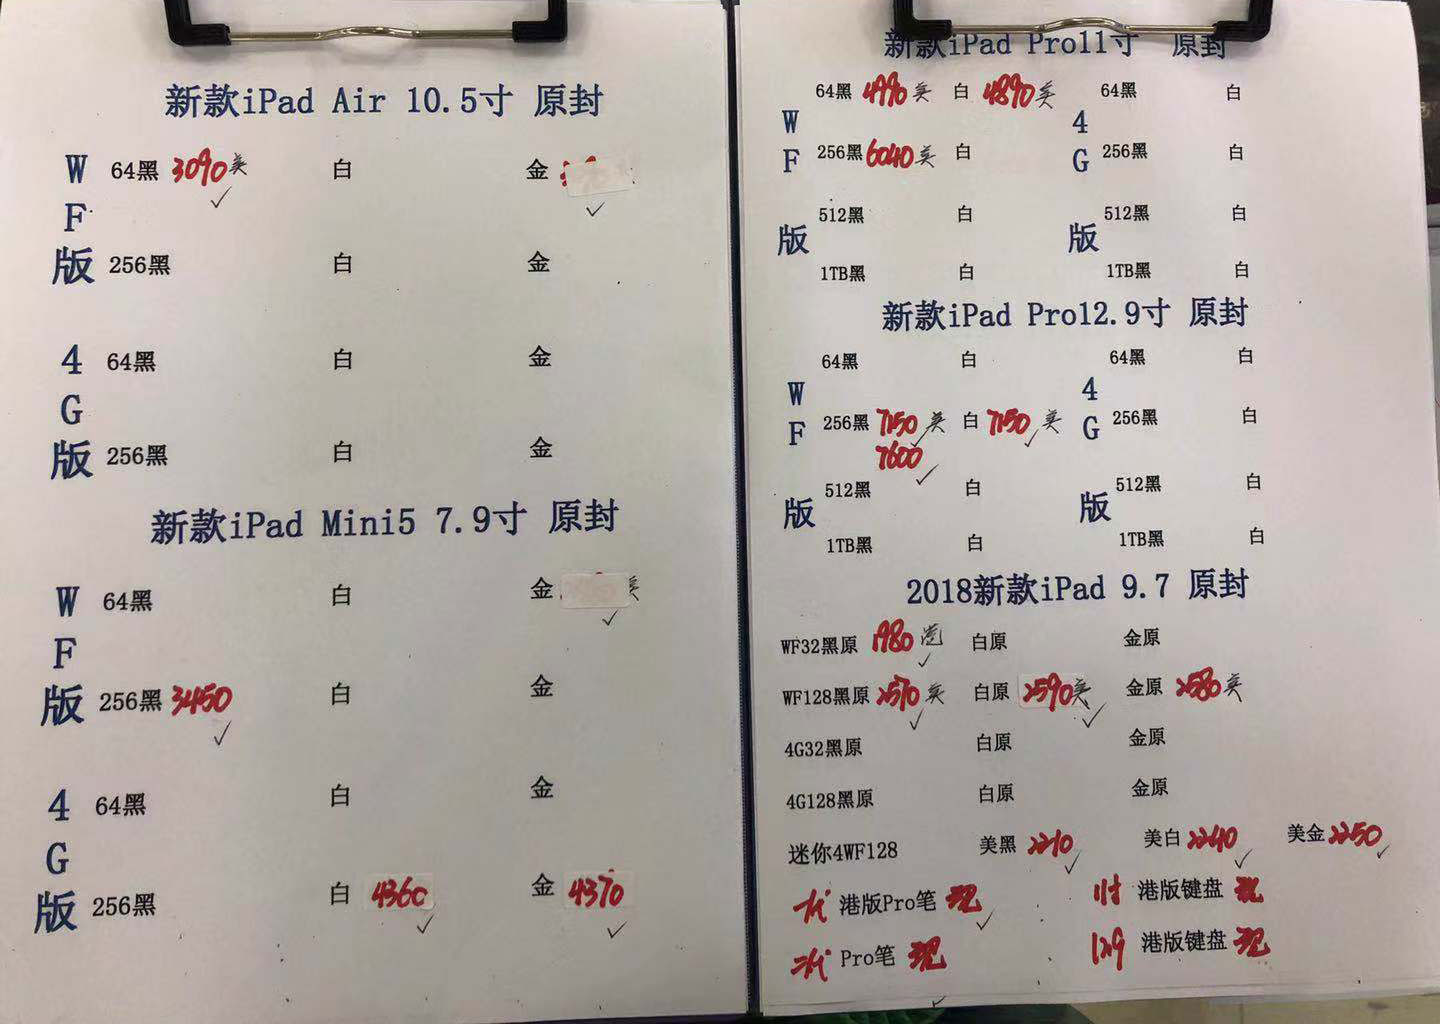 新款iPad Air 10.5寸 原封
WF版
64黑 3090美 白 金
256黑 白 金
4G版
64黑 白 金
256黑 白 金
新款iPad Mini5 7.9寸 原封
WF版
64黑 白 金 美
256黑 3450 白 金
4G版
64黑 白 金
256黑 白 4360 金 4370
新款iPad Pro11寸 原封
WF版
64黑 4990美 白 4890美
256黑 6040美 白
512黑 白
1TB黑 白
4G版
64黑 白
256黑 白
512黑 白
1TB黑 白
新款iPad Pro12.9寸 原封
WF版
64黑 白
256黑 7150美 白 7150美
7600
512黑 白
1TB黑 白
4G版
64黑 白
256黑 白
512黑 白
1TB黑 白
2018新款iPad 9.7 原封
WF32黑原 1980港 白原 金原
WF128黑原 2570美 白原 2590美 金原 2580美
4G32黑原 白原 金原
4G128黑原 白原 金原
迷你4WF128 美黑 2210 美白 2240 美金 2250
一代 港版Pro笔 现 11寸 港版键盘 现
二代 Pro笔 现 12.9 港版键盘 现